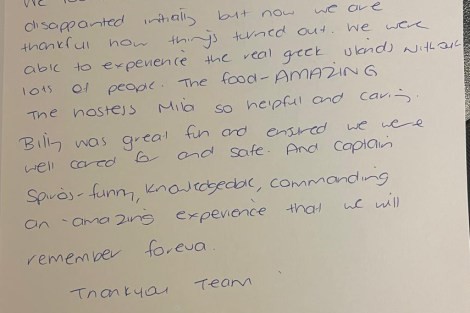 disappointed initially but now we are
thankful how things turned out. We were
able to experience the real greek islands without
lots of people. The food - AMAZING
The hostess Mila so helpful and caring.
Billy was great fun and ensured we were
well cared for and safe. And captain
Spiros - funny, knowledgeable, commanding
an - amazing experience that we will
remember foreva.
Thankyou Team